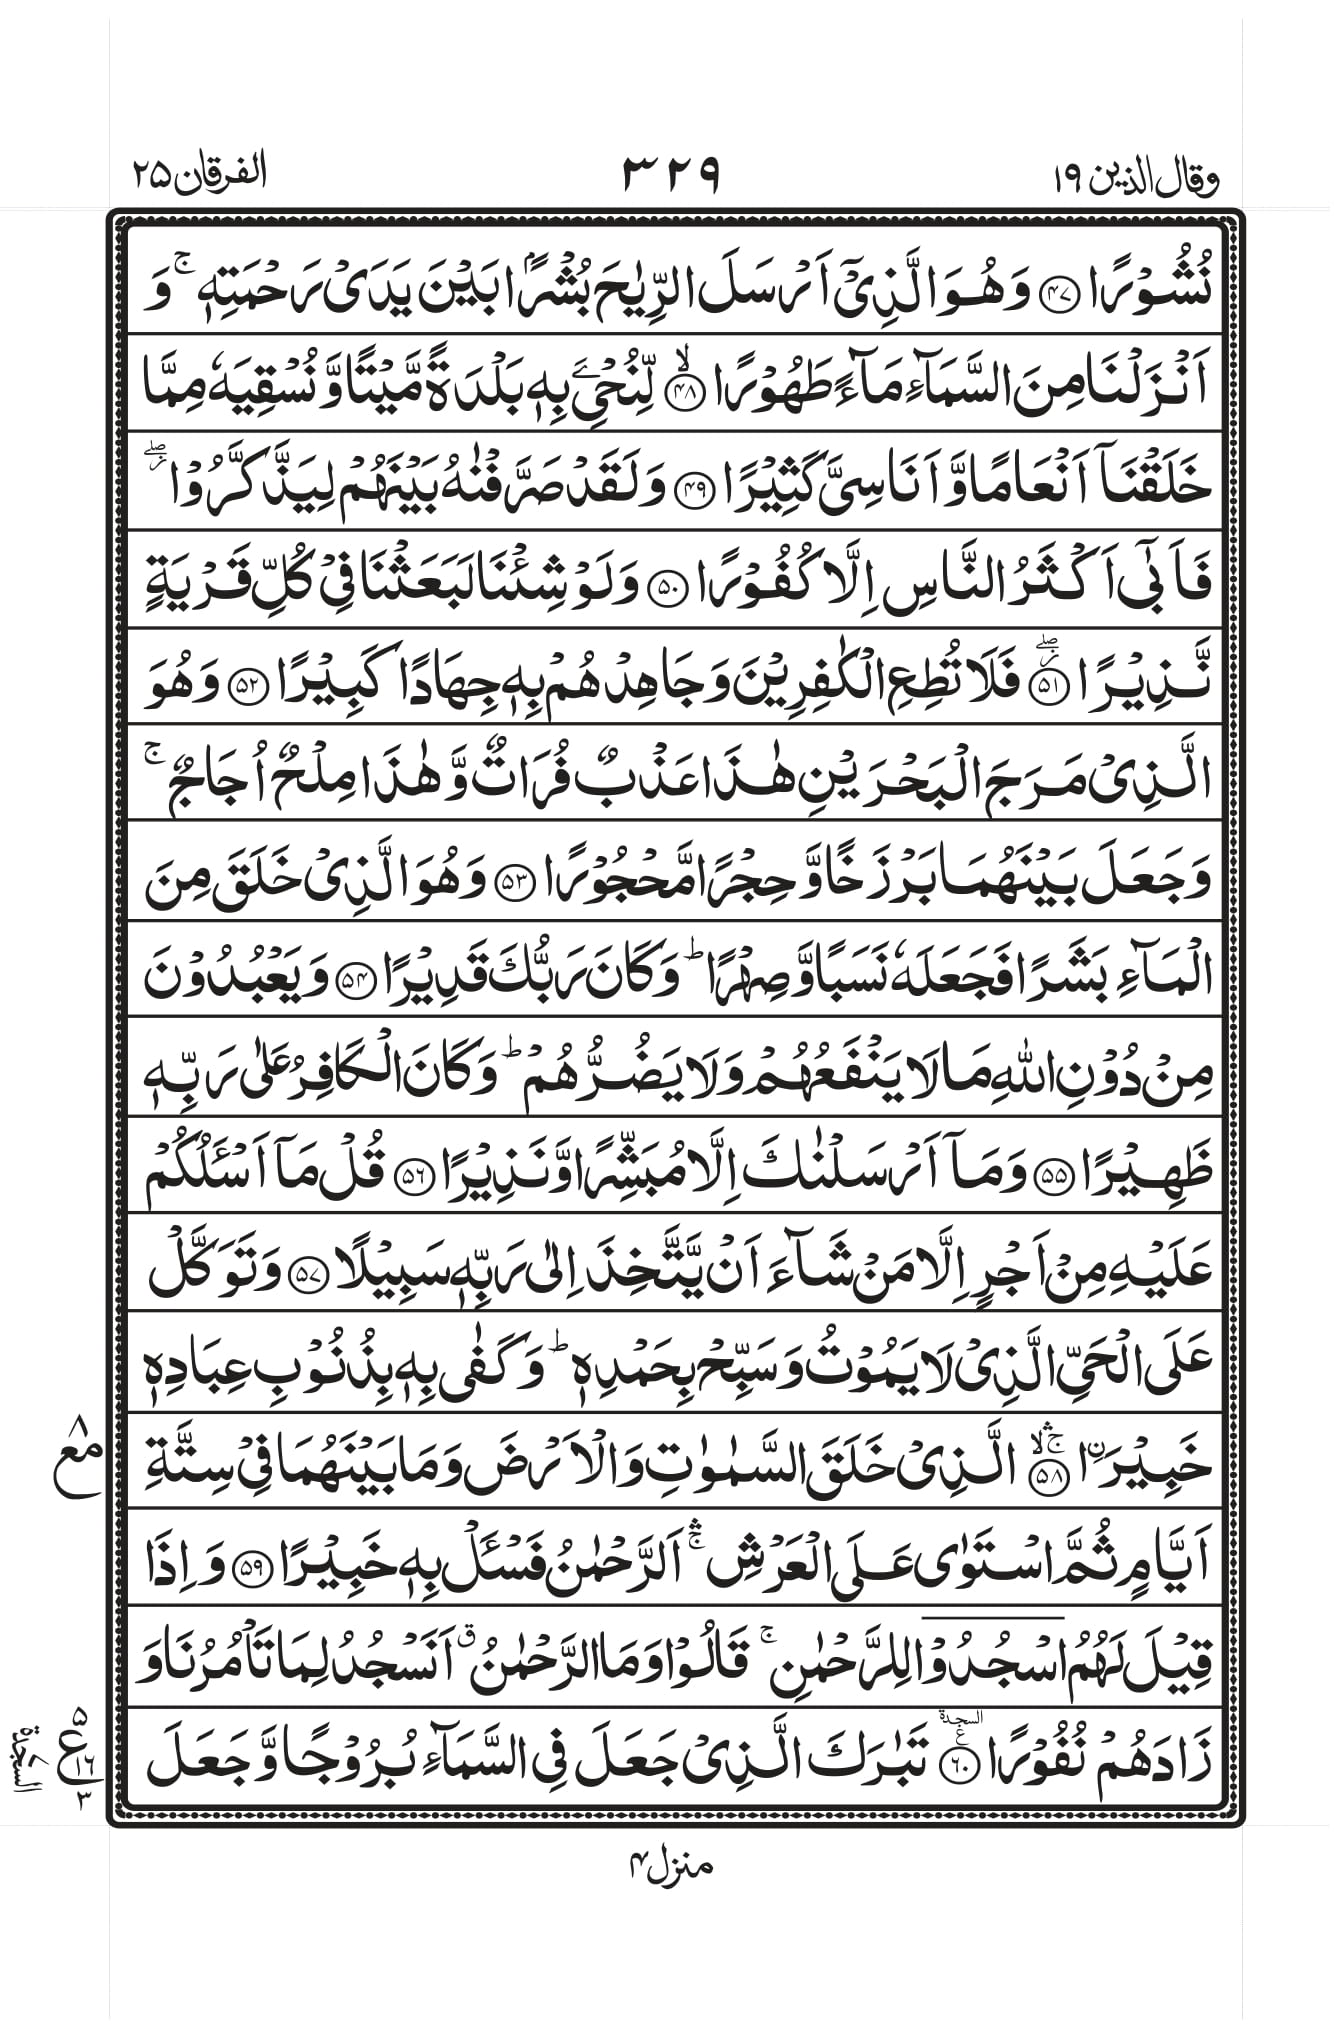 وقال الذين ۱۹
۳۲۹
الفرقان ۲۵
نُشُوۡرًا ﴿۴۷﴾ وَهُوَ الَّذِىۡۤ اَرۡسَلَ الرِّيٰحَ بُشۡرًۢا بَيۡنَ يَدَىۡ رَحۡمَتِهٖ‌ۚ وَ
اَنۡزَلۡنَا مِنَ السَّمَآءِ مَآءً طَهُوۡرًا ۙ‏﴿۴۸﴾ لِّنُحْیَِۧ بِهٖ بَلۡدَةً مَّيۡتًا وَّنُسۡقِيَهٗ مِمَّا
خَلَقۡنَاۤ اَنۡعَامًا وَّاَنَاسِىَّ كَثِيۡرًا ﴿۴۹﴾ وَلَقَدۡ صَرَّفۡنٰهُ بَيۡنَهُمۡ لِيَذَّكَّرُوۡا ۖ
فَاَبٰٓى اَكۡثَرُ النَّاسِ اِلَّا كُفُوۡرًا ﴿۵۰﴾ وَلَوۡ شِئۡنَا لَبَعَثۡنَا فِىۡ كُلِّ قَرۡيَةٍ
نَّذِيۡرًا ۖ ﴿۵۱﴾ فَلَا تُطِعِ الۡكٰفِرِيۡنَ وَجَاهِدۡهُمۡ بِهٖ جِهَادًا كَبِيۡرًا ﴿۵۲﴾ وَهُوَ
الَّذِىۡ مَرَجَ الۡبَحۡرَيۡنِ هٰذَا عَذۡبٌ فُرَاتٌ وَّهٰذَا مِلۡحٌ اُجَاجٌ‌ ۚ
وَجَعَلَ بَيۡنَهُمَا بَرۡزَخًا وَّحِجۡرًا مَّحۡجُوۡرًا ﴿۵۳﴾ وَهُوَ الَّذِىۡ خَلَقَ مِنَ
الۡمَآءِ بَشَرًا فَجَعَلَهٗ نَسَبًا وَّصِهۡرًا‌ ؕ وَكَانَ رَبُّكَ قَدِيۡرًا ﴿۵۴﴾ وَيَعۡبُدُوۡنَ
مِنۡ دُوۡنِ اللّٰهِ مَا لَا يَنۡفَعُهُمۡ وَلَا يَضُرُّهُمۡ‌ ؕ وَكَانَ الۡـكَافِرُ عَلٰى رَبِّهٖ
ظَهِيۡرًا ﴿۵۵﴾ وَمَاۤ اَرۡسَلۡنٰكَ اِلَّا مُبَشِّرًا وَّنَذِيۡرًا ﴿۵۶﴾ قُلۡ مَاۤ اَسۡـَٔـلُكُمۡ
عَلَيۡهِ مِنۡ اَجۡرٍ اِلَّا مَنۡ شَآءَ اَنۡ يَّتَّخِذَ اِلٰى رَبِّهٖ سَبِيۡلًا ﴿۵۷﴾ وَتَوَكَّلۡ
عَلَى الۡحَىِّ الَّذِىۡ لَا يَمُوۡتُ وَسَبِّحۡ بِحَمۡدِهٖ‌ ؕ وَكَفٰى بِهٖ بِذُنُوۡبِ عِبَادِهٖ
خَبِيۡرَاۨ ۛۚ ۙ ﴿۵۸﴾ الَّذِىۡ خَلَقَ السَّمٰوٰتِ وَالۡاَرۡضَ وَمَا بَيۡنَهُمَا فِىۡ سِتَّةِ
اَيَّامٍ ثُمَّ اسۡتَوٰى عَلَى الۡعَرۡشِ ۛۚ اَلرَّحۡمٰنُ فَسۡـَٔـلۡ بِهٖ خَبِيۡرًا ﴿۵۹﴾ وَاِذَا
قِيۡلَ لَهُمُ اسۡجُدُوۡا لِلرَّحۡمٰنِ‌ ۚ قَالُوۡا وَمَا الرَّحۡمٰنُ ق اَنَسۡجُدُ لِمَا تَاۡمُرُنَا وَ
زَادَهُمۡ نُفُوۡرًا ﴿۶۰﴾ السجدة ع تَبٰرَكَ الَّذِىۡ جَعَلَ فِى السَّمَآءِ بُرُوۡجًا وَّجَعَلَ
مع ۸
۵ ع ۱۶ ۳
السجدة
منزل ۴